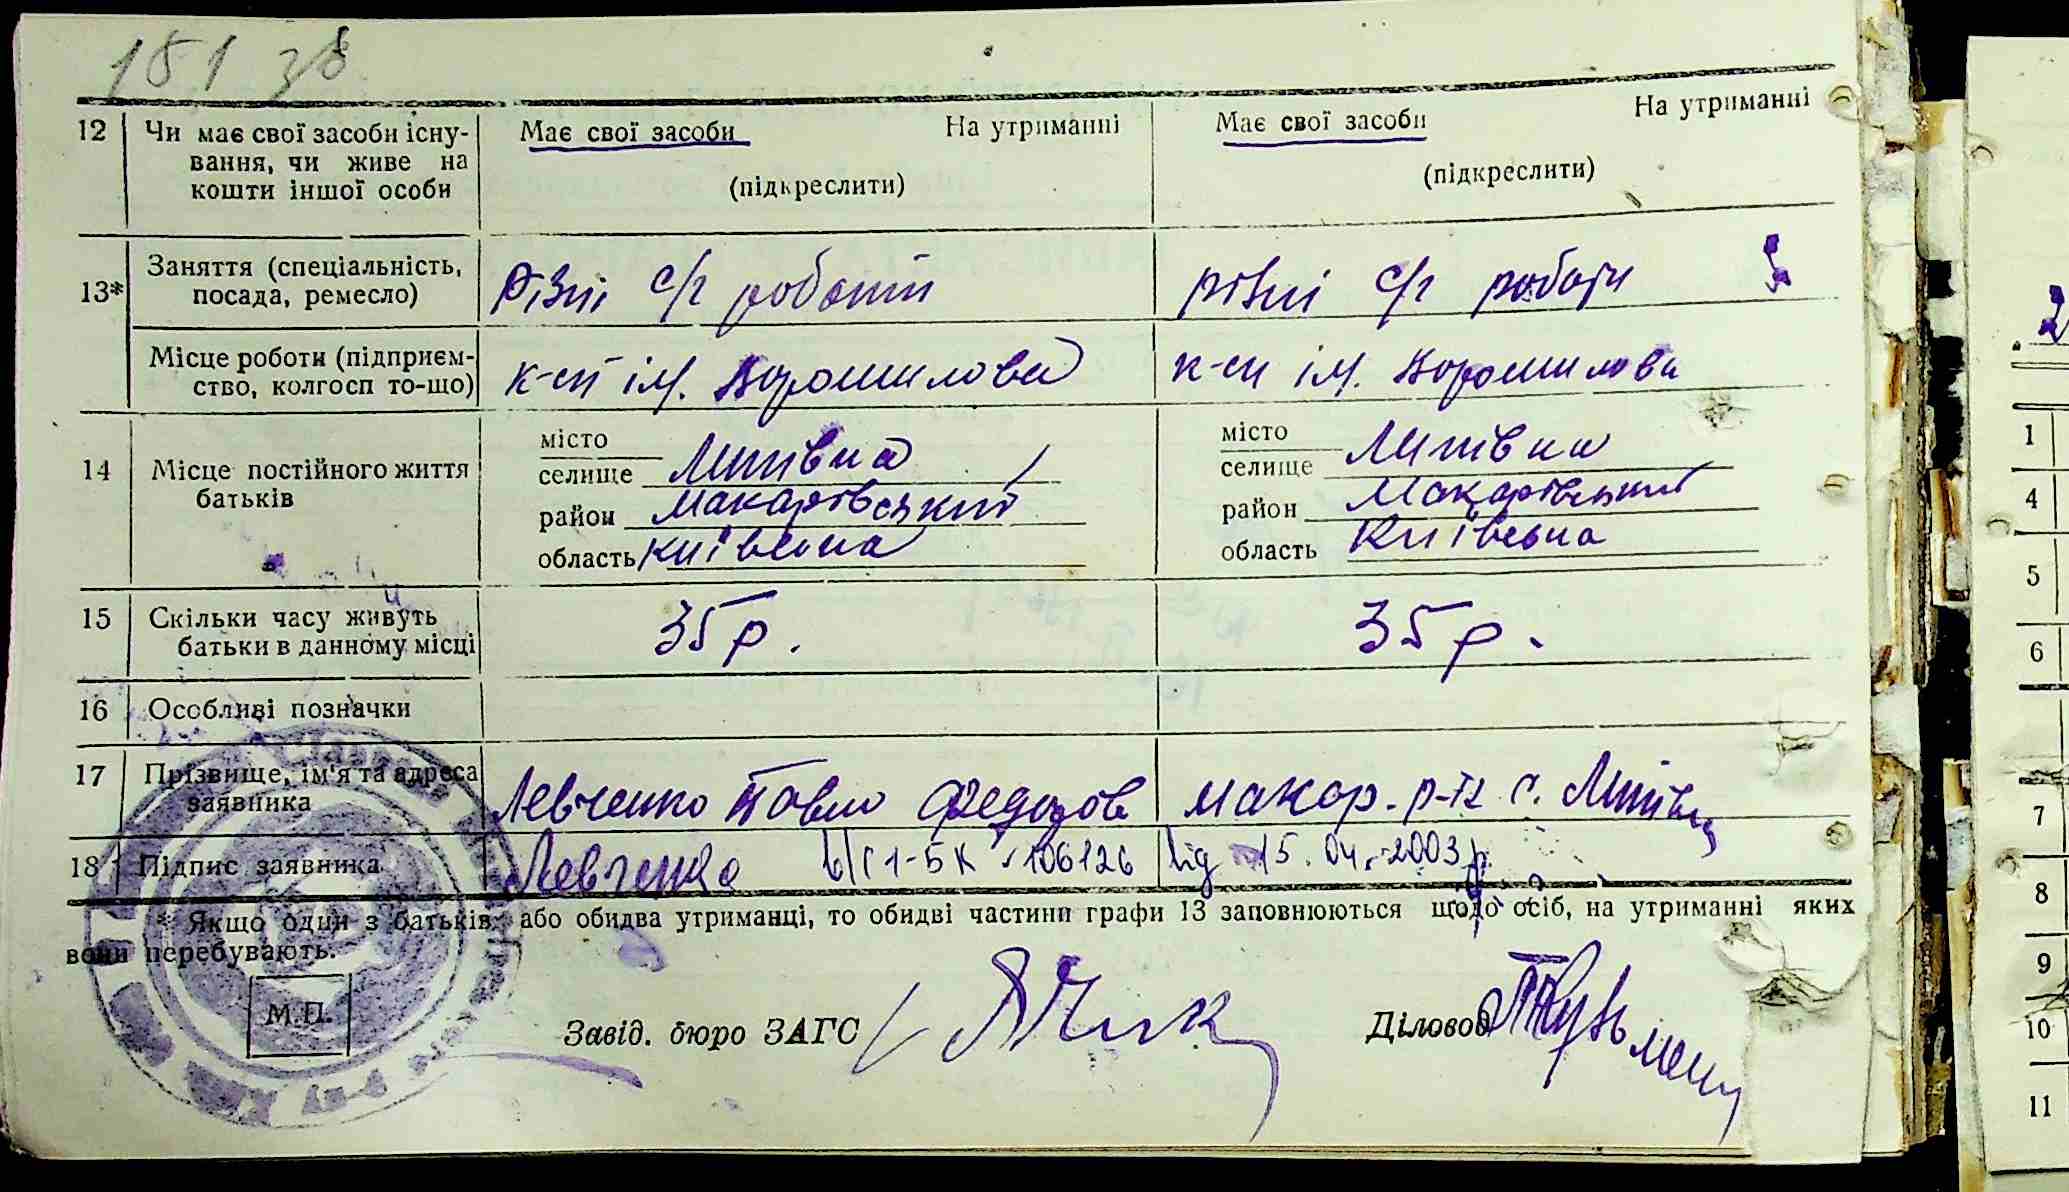 151 зв
12 Чи має свої засоби існу- Має свої засоби На утриманні Має свої засоби На утриманні
вання, чи живе на
кошти іншої особи (підкреслити) (підкреслити)
13* Заняття (спеціальність,
посада, ремесло) різні с/г роботи різні с/г роботи
Місце роботи (підприєм-
ство, колгосп то-що) к-сп ім. Ворошилова к-сп ім. Ворошилова
14 Місце постійного життя
батьків
місто місто
селище Липівка селище Липівка
район Макарівський район Макарівський
область Київська область Київська
15 Скільки часу живуть
батьки в данному місці 35 р. 35 р.
16 Особливі позначки
17 Прізвище, ім'я та адреса
заявника Левченко Павло Федоров макар. р-н с. Липівка
18 Підпис заявника Левченко 1-БК 106126 від 15.04.2003р.
* Якщо один з батьків, або обидва утриманці, то обидві частини графи 13 заповнюються щодо осіб, на утриманні яких
вони перебувають.
М.П.
Завід. бюро ЗАГС Діловод
2
1
4
5
6
7
8
9
10
11